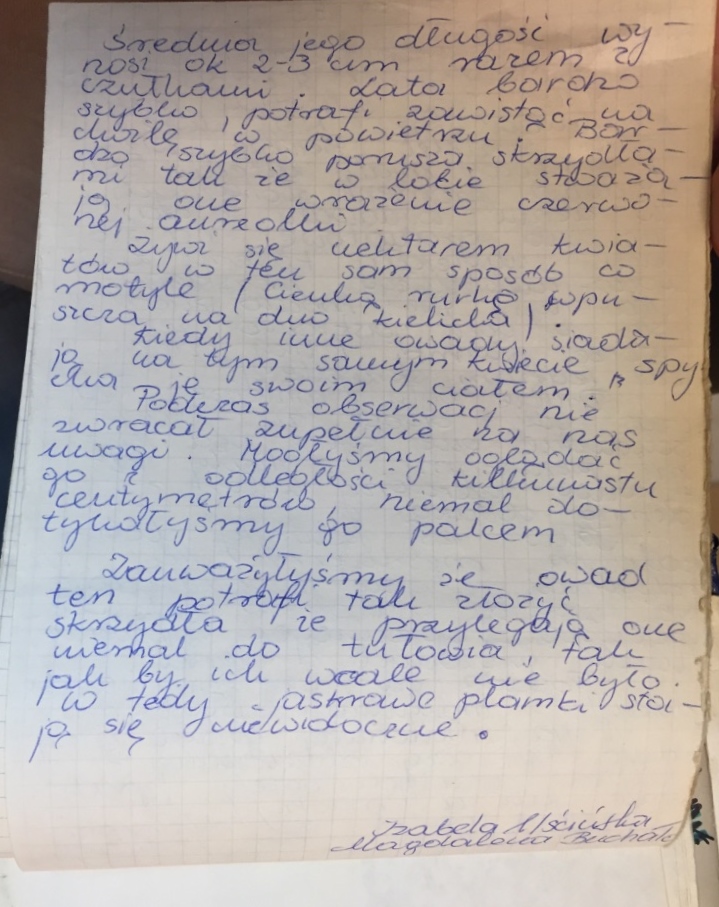 Średnia jego długość wy-
nosi ok 2-3 cm razem z
czułkami. Lata bardzo
szybko, potrafi zawisnąć na
chwilę w powietrzu. Bar-
dzo szybko porusza skrzydła-
mi tak że w locie stwarza-
ją one wrażenie czerwo-
nej aureolki
Żywi się nektarem kwia-
tów w ten sam sposób co
motyle (cienką rurkę wpu-
szcza na dno kielicha).
Kiedy inne owady siada-
ją na tym samym kwiecie, spy
cha je swoim ciałem.
Podczas obserwacj nie
zwracał zupełnie na nas
uwagi. Mogłyśmy oglądać
go z odległości kilkunastu
centymetrów, niemal do-
tykałyśmy go palcem
Zauważyłyśmy że owad
ten potrafi tak złożyć
skrzydła że przylegają one
niemal do tułowia, tak
jak by ich wcale nie było.
W tedy jaskrawe plamki sta-
ją się niewidoczne.
Izabela
Magdalena